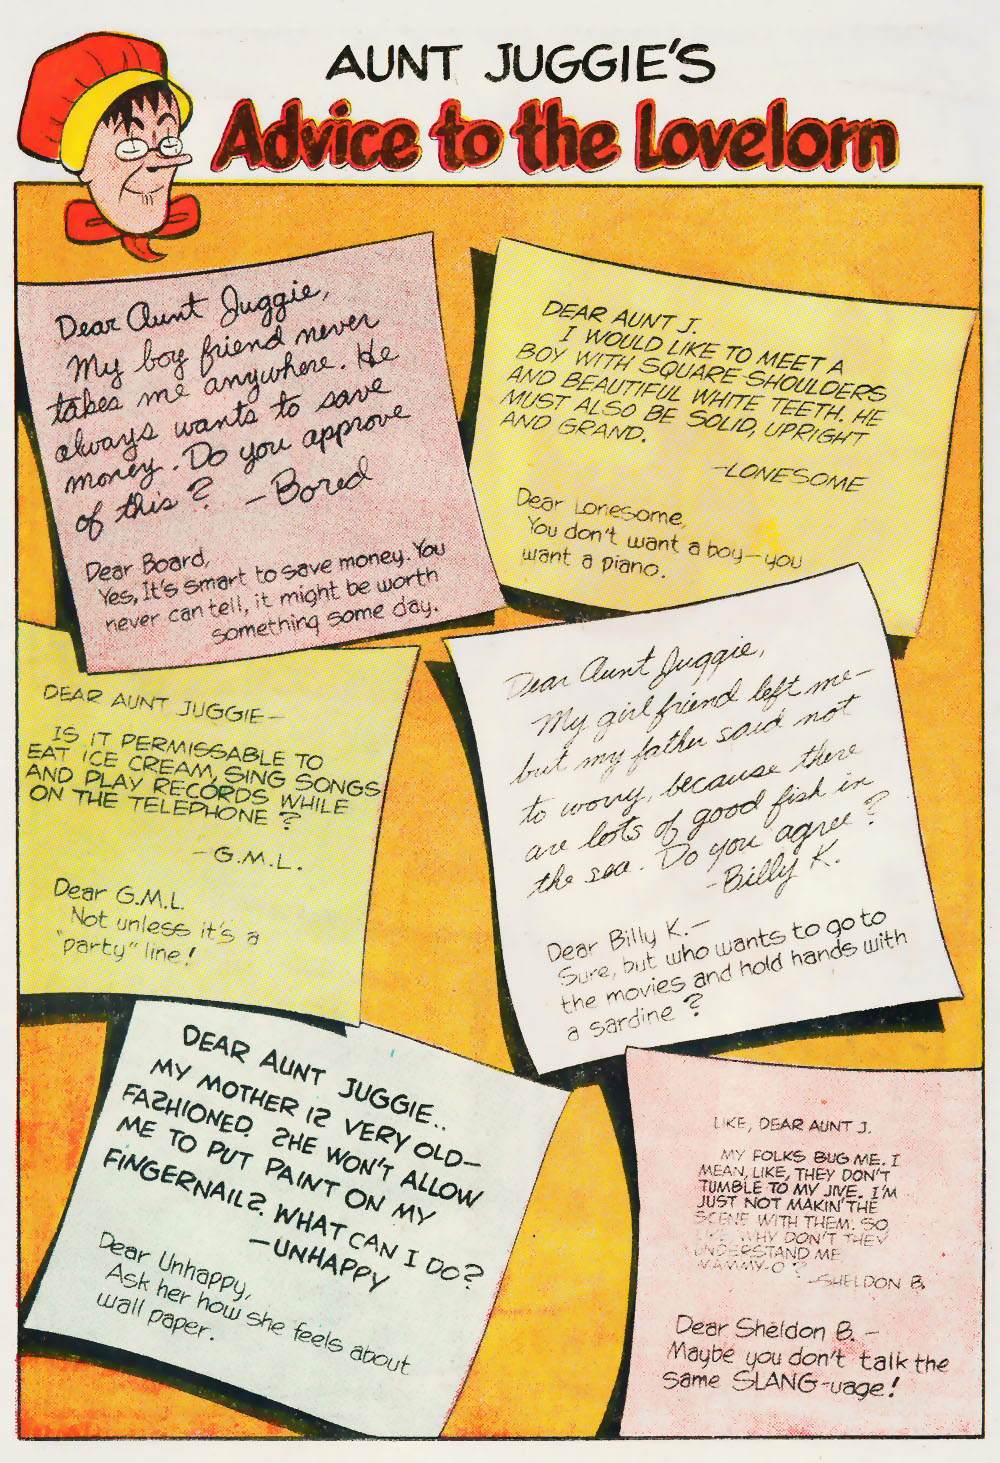 AUNT JUGGIE'S
Advice to the Lovelorn
Dear Aunt Juggie,
My boy friend never
takes me anywhere. He
always wants to save
money. Do you approve
of this? -Bored
Dear Board,
Yes, It's smart to save money. You
never can tell, it might be worth
something some day.
DEAR AUNT J.
I WOULD LIKE TO MEET A
BOY WITH SQUARE SHOULDERS
AND BEAUTIFUL WHITE TEETH. HE
MUST ALSO BE SOLID, UPRIGHT
AND GRAND.
-LONESOME
Dear Lonesome,
You don't want a boy—you
want a piano.
DEAR AUNT JUGGIE—
IS IT PERMISSABLE TO
EAT ICE CREAM, SING SONGS
AND PLAY RECORDS WHILE
ON THE TELEPHONE?
-G.M.L.
Dear G.M.L.
Not unless it's a
"party" line!
Dear Aunt Juggie,
My girl friend left me—
but my father said not
to worry, because there
are lots of good fish in
the sea. Do you agree?
-Billy K.
Dear Billy K.—
Sure, but who wants to go to
the movies and hold hands with
a sardine?
DEAR AUNT JUGGIE..
MY MOTHER IS VERY OLD—
FASHIONED. SHE WON'T ALLOW
ME TO PUT PAINT ON MY
FINGERNAILS. WHAT CAN I DO?
—UNHAPPY
Dear Unhappy,
Ask her how she feels about
wall paper.
LIKE, DEAR AUNT J.
MY FOLKS BUG ME. I
MEAN, LIKE, THEY DON'T
TUMBLE TO MY JIVE. I'M
JUST NOT MAKIN' THE
SCENE WITH THEM. SO
LIKE WHY DON'T THEY
UNDERSTAND ME
MAMMY-O?
-SHELDON B.
Dear Sheldon B. —
Maybe you don't talk the
same SLANG-uage!